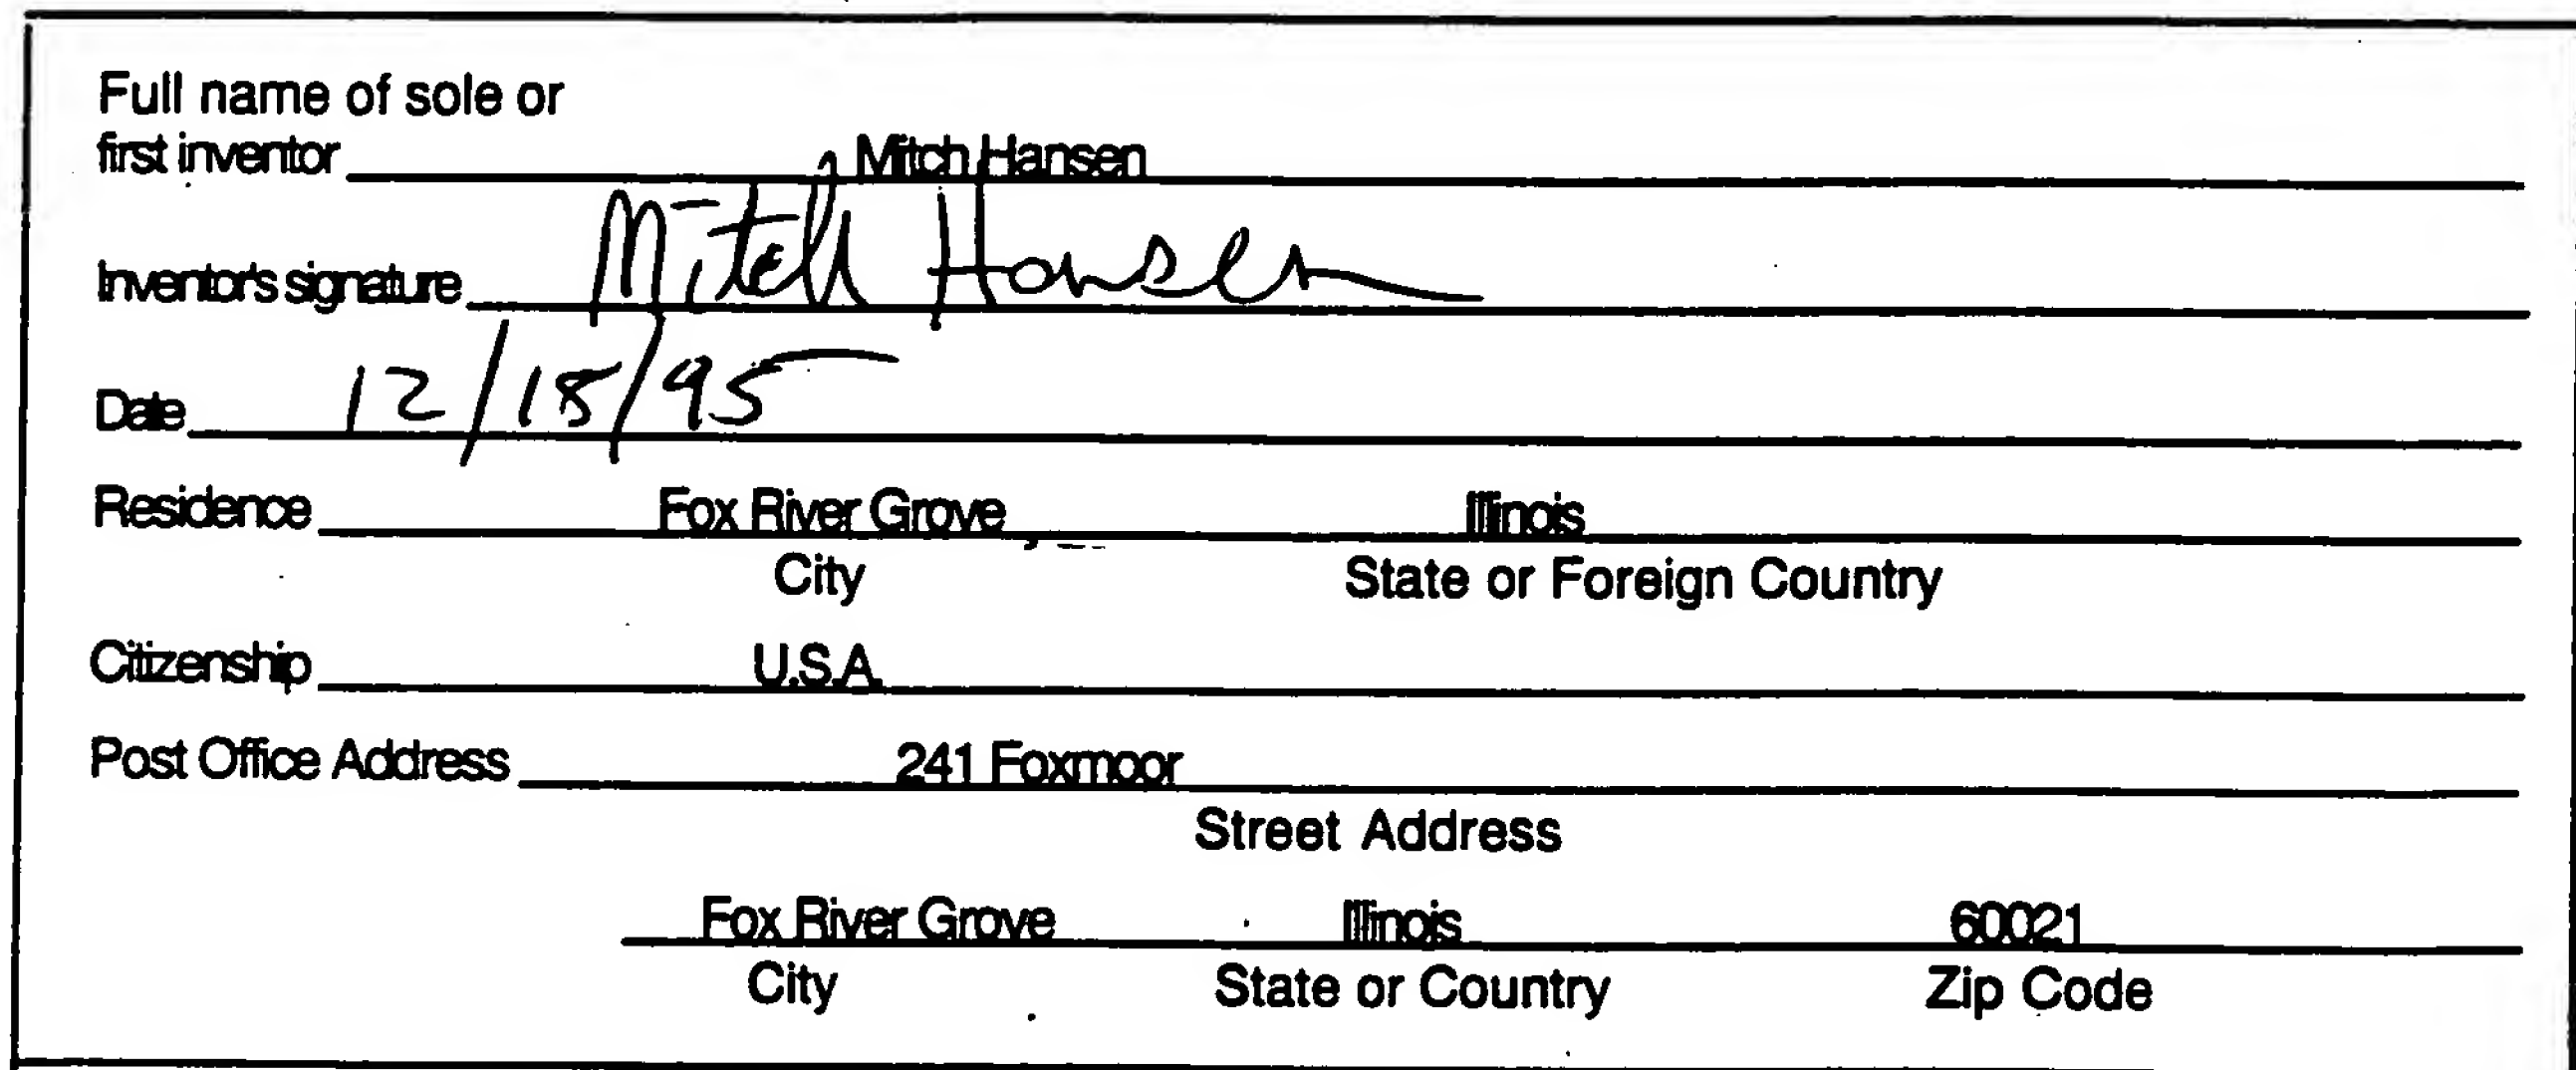 Full name of sole or
first inventor Mitch Hansen
Inventor's signature Mitch Hansen
Date 12/18/95
Residence Fox River Grove Illinois
City State or Foreign Country
Citizenship U.S.A.
Post Office Address 241 Foxmoor
Street Address
Fox River Grove Illinois 60021
City State or Country Zip Code